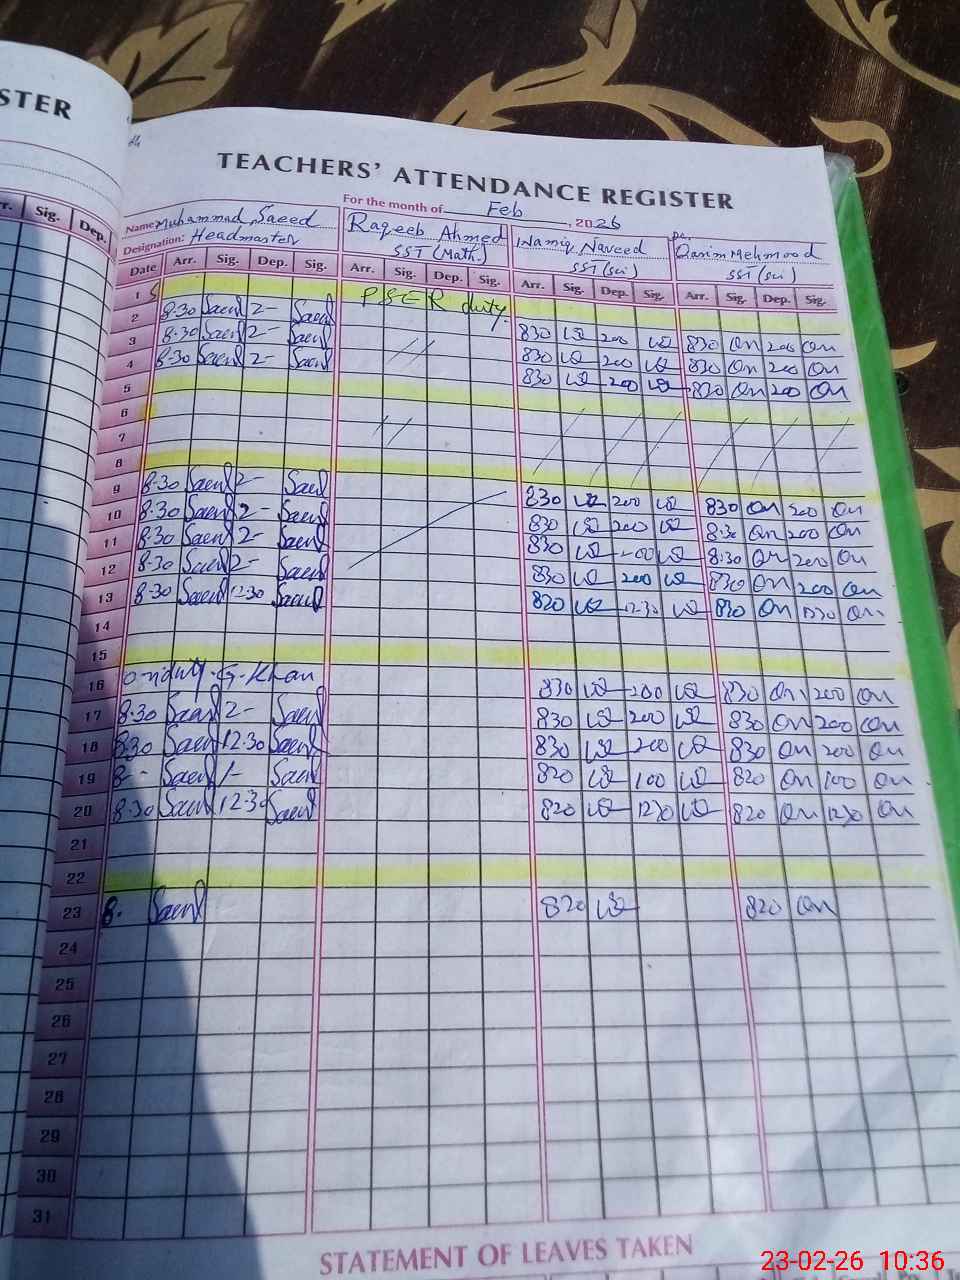 STER
TEACHERS' ATTENDANCE REGISTER
For the month of Feb, 2026
rr. Sig. Dep.
Name: Muhammad Saeed Raqeeb Ahmed Wamiq Naveed Qasim Mehmood
Designation: Headmaster SST (Math.) SST (Sci) SST (Sci)
Date Arr. Sig. Dep. Sig. Arr. Sig. Dep. Sig. Arr. Sig. Dep. Sig. Arr. Sig. Dep. Sig.
1 S PSER duty.
2 8-30 Saeed 2- Saeed 830 200 830 200
3 8-30 Saeed 2- Saeed 830 200 830 200
4 8-30 Saeed 2- Saeed 830 200 830 200
5
6
7
8
9 8-30 Saeed 2- Saeed 830 200 830 200
10 8-30 Saeed 2- Saeed 830 200 8:30 200
11 8-30 Saeed 2- Saeed 830 200 8:30 200
12 8-30 Saeed 2- Saeed 830 200 830 200
13 8-30 Saeed 12:30 Saeed 820 12:30 820 1230
14
15
16 on duty G. Khan 830 200 830 200
17 8-30 Saeed 2- Saeed 830 200 830 200
18 8-30 Saeed 12-30 Saeed 830 200 830 200
19 8- Saeed 1- Saeed 820 100 820 100
20 8-30 Saeed 12-30 Saeed 820 1230 820 1230
21
22
23 8. Saeed 820 820
24
25
26
27
28
29
30
31
STATEMENT OF LEAVES TAKEN
23-02-26 10:36